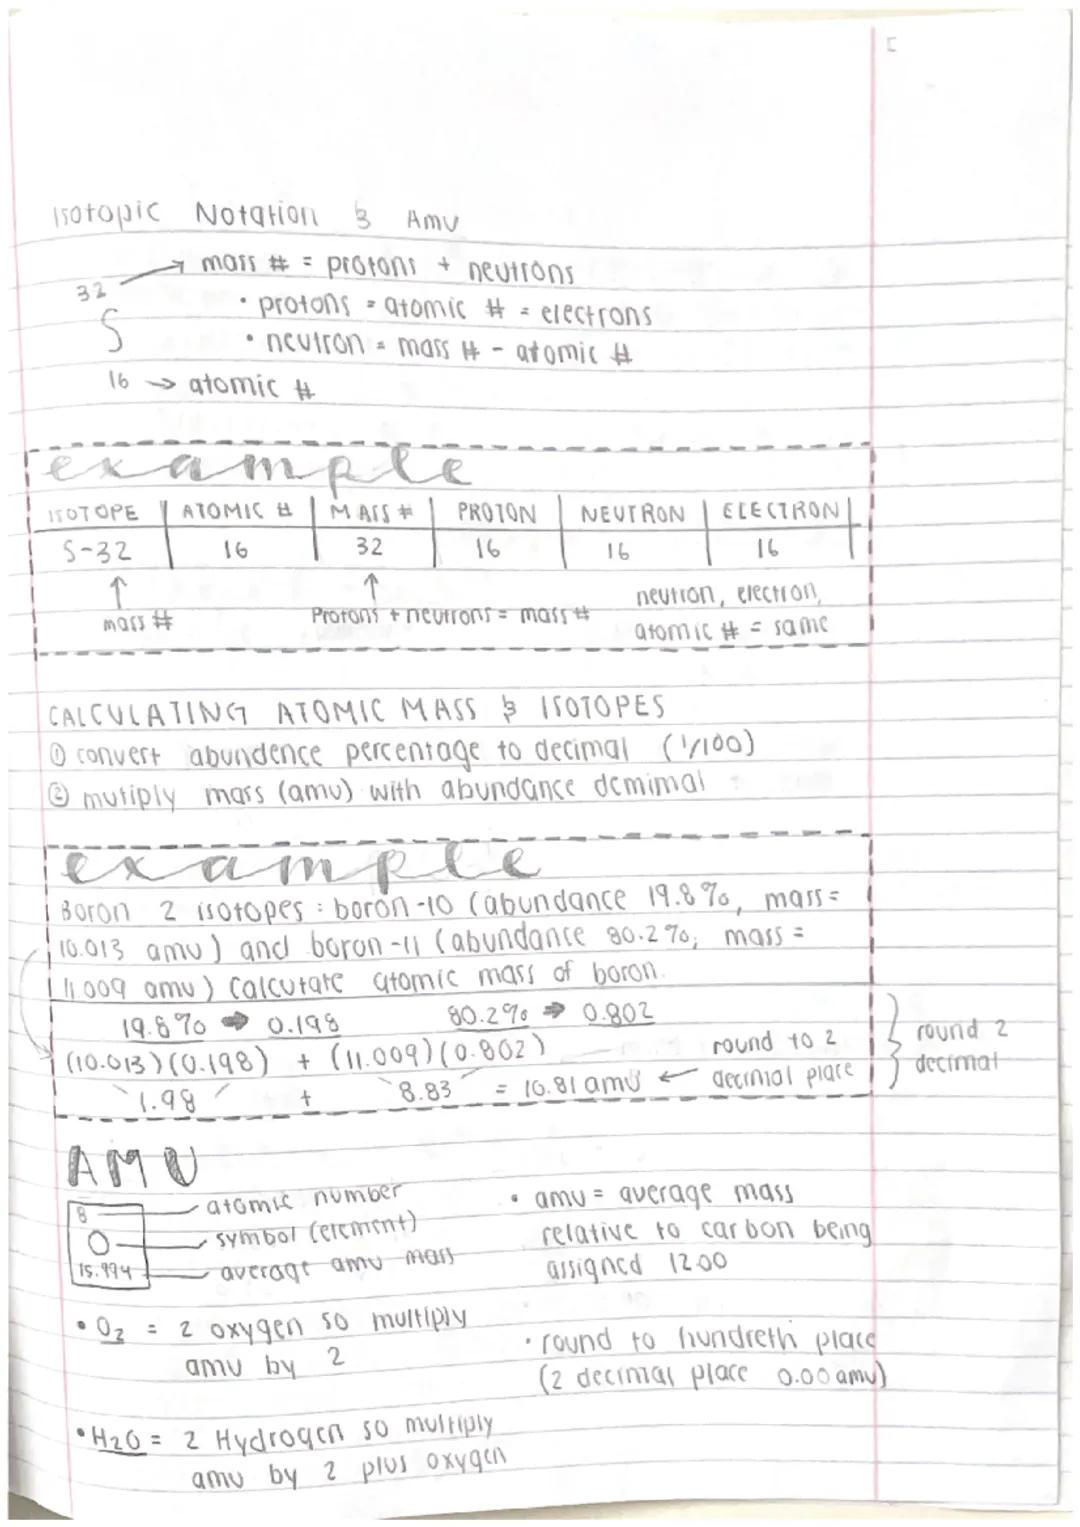 Isotopic Notation & Amu
mass # = protons + neutrons
32
• protons = atomic # = electrons
S
• neutron = mass # - atomic #
16 → atomic #
example
ISOTOPE ATOMIC # MASS # PROTON NEUTRON ELECTRON
S-32 16 32 16 16 16
↑ ↑
mass # Protons + neutrons = mass # neutron, electron,
atomic # = same
CALCULATING ATOMIC MASS & ISOTOPES
① convert abundence percentage to decimal (1/100)
② mutiply mass (amu) with abundance demimal
example
Boron 2 isotopes : boron-10 (abundance 19.8%, mass =
10.013 amu) and boron-11 (abundance 80.2%, mass =
11.009 amu) Calculate atomic mass of boron.
19.8% → 0.198 80.2% → 0.802
(10.013)(0.198) + (11.009)(0.802) round to 2
1.98 + 8.83 = 10.81 amu ← decimal place
round 2
decimal
AMU
8 atomic number
O symbol (element)
15.994 average amu mass
• amu = average mass
relative to carbon being
assigned 12.00
• O2 = 2 oxygen so multiply
amu by 2
• round to hundreth place
(2 decimal place 0.00 amu)
• H2O = 2 Hydrogen so multiply
amu by 2 plus oxygen